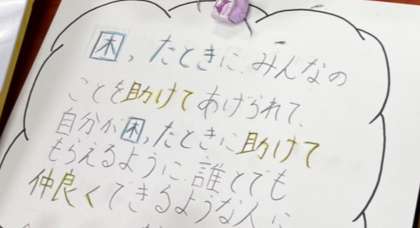 困ったときに、みんなの
ことを助けてあげられて、
自分が困ったときに助けて
もらえるように、誰とでも
仲良くできるような人に